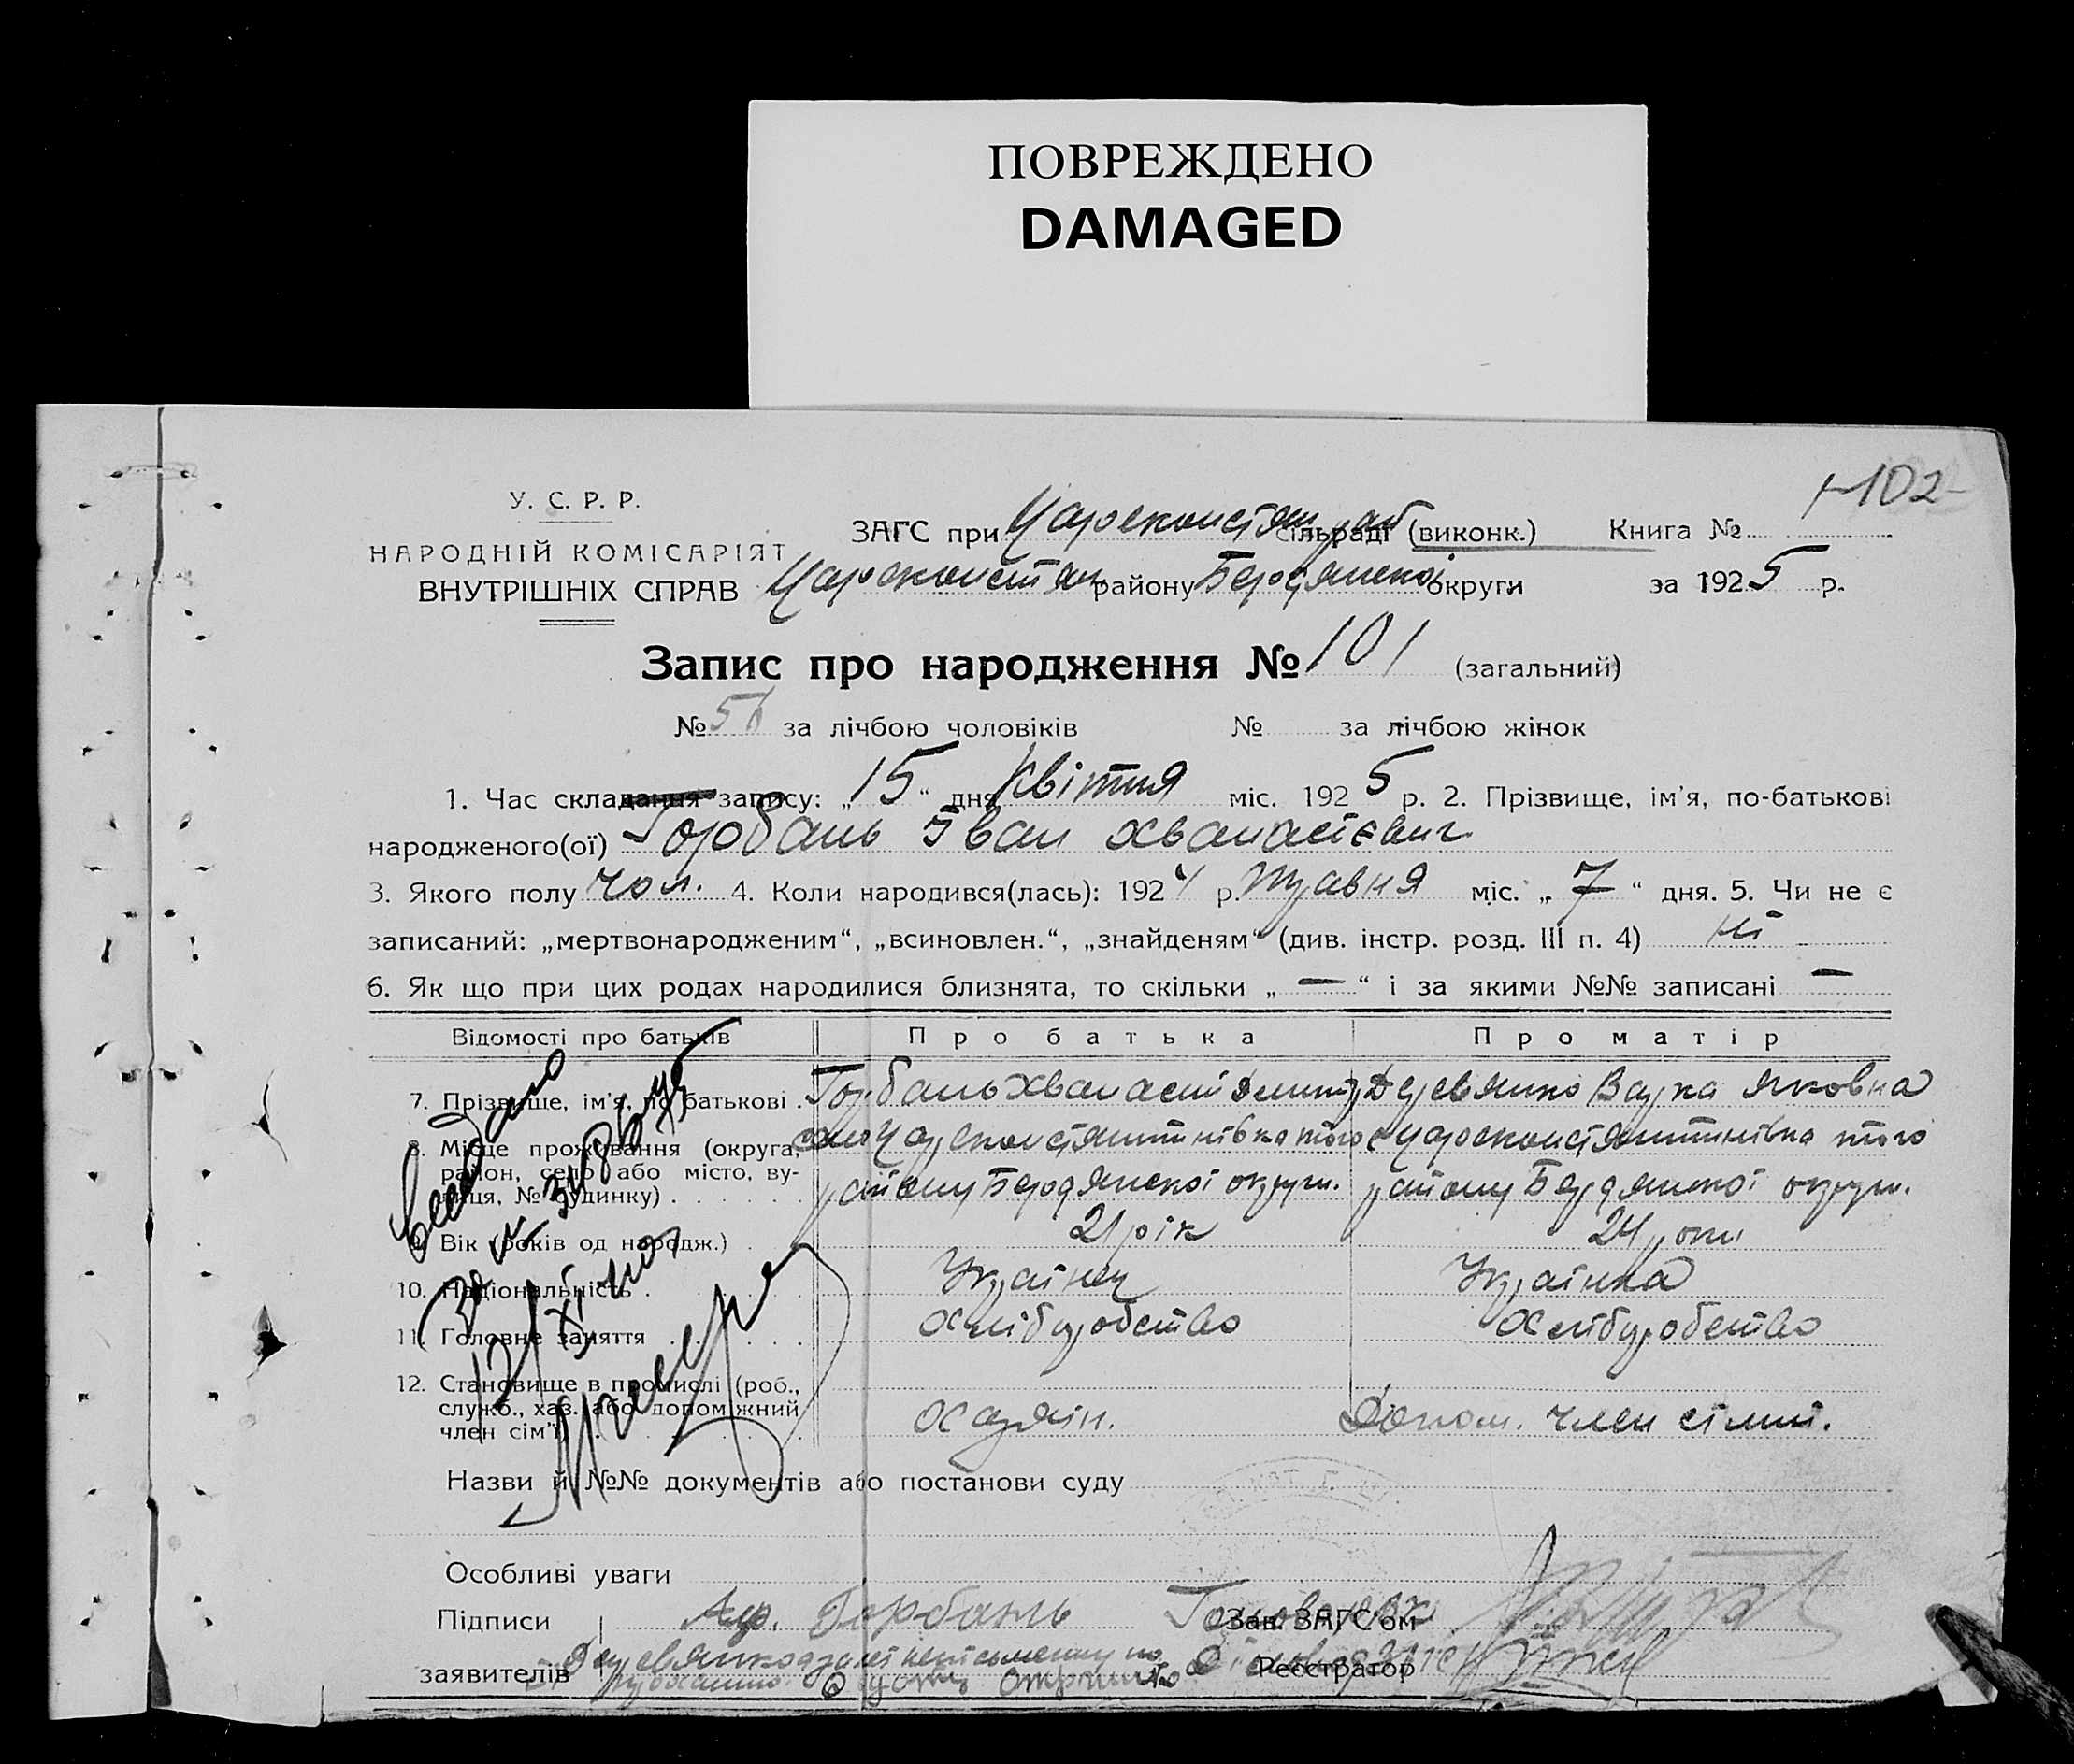 ПОВРЕЖДЕНО
DAMAGED
102
У. С. Р. Р.
НАРОДНІЙ КОМІСАРІЯТ
ВНУТРІШНІХ СПРАВ
ЗАГС при Цароконстян рай сільраді (виконк.) Книга №
Цароконстян району Бердянської округи за 1925 р.
Запис про народження № 101 (загальний)
№ за лічбою чоловіків № за лічбою жінок
1. Час складання запису: „15“ дня Квітня міс. 1925 р. 2. Прізвище, ім'я, по-батькові
народженого(ої) Горбань Іван Хванастєвич
3. Якого полу чол. 4. Коли народився(лась): 1924 р. травня міс. „7“ дня. 5. Чи не є
записаний: „мертвонародженим“, „всиновлен.“, „знайденям“ (див. інстр. розд. III п. 4) ні
6. Як що при цих родах народилися близнята, то скільки „—“ і за якими №№ записані —
Відомості про батьків Про батька Про матір
7. Прізвище, ім'я, по батькові . Горбань Хванасій Деревянко Варка Яковна
8. Місце проживання (округа, село Цароконстянтинівка того с Цароконстянтинівка того
район, село або місто, ву- району Бердянської округи. району Бердянської округи.
лиця, № будинку) .
9. Вік (років од народж.) . 21 рік 24 роки
10. Національність . Українец Українка
11. Головне заняття Хліборобство Хліборобство
12. Становище в промислі (роб.,
служб., хаз. або допоміжний Хазяін. Допом. член сімії.
член сім'ї)
Назви й №№ документів або постанови суду
Особливі уваги
Підписи Горбань Зав. ЗАГС'ом
заявителів Деревянко неписьменну Реєстратор